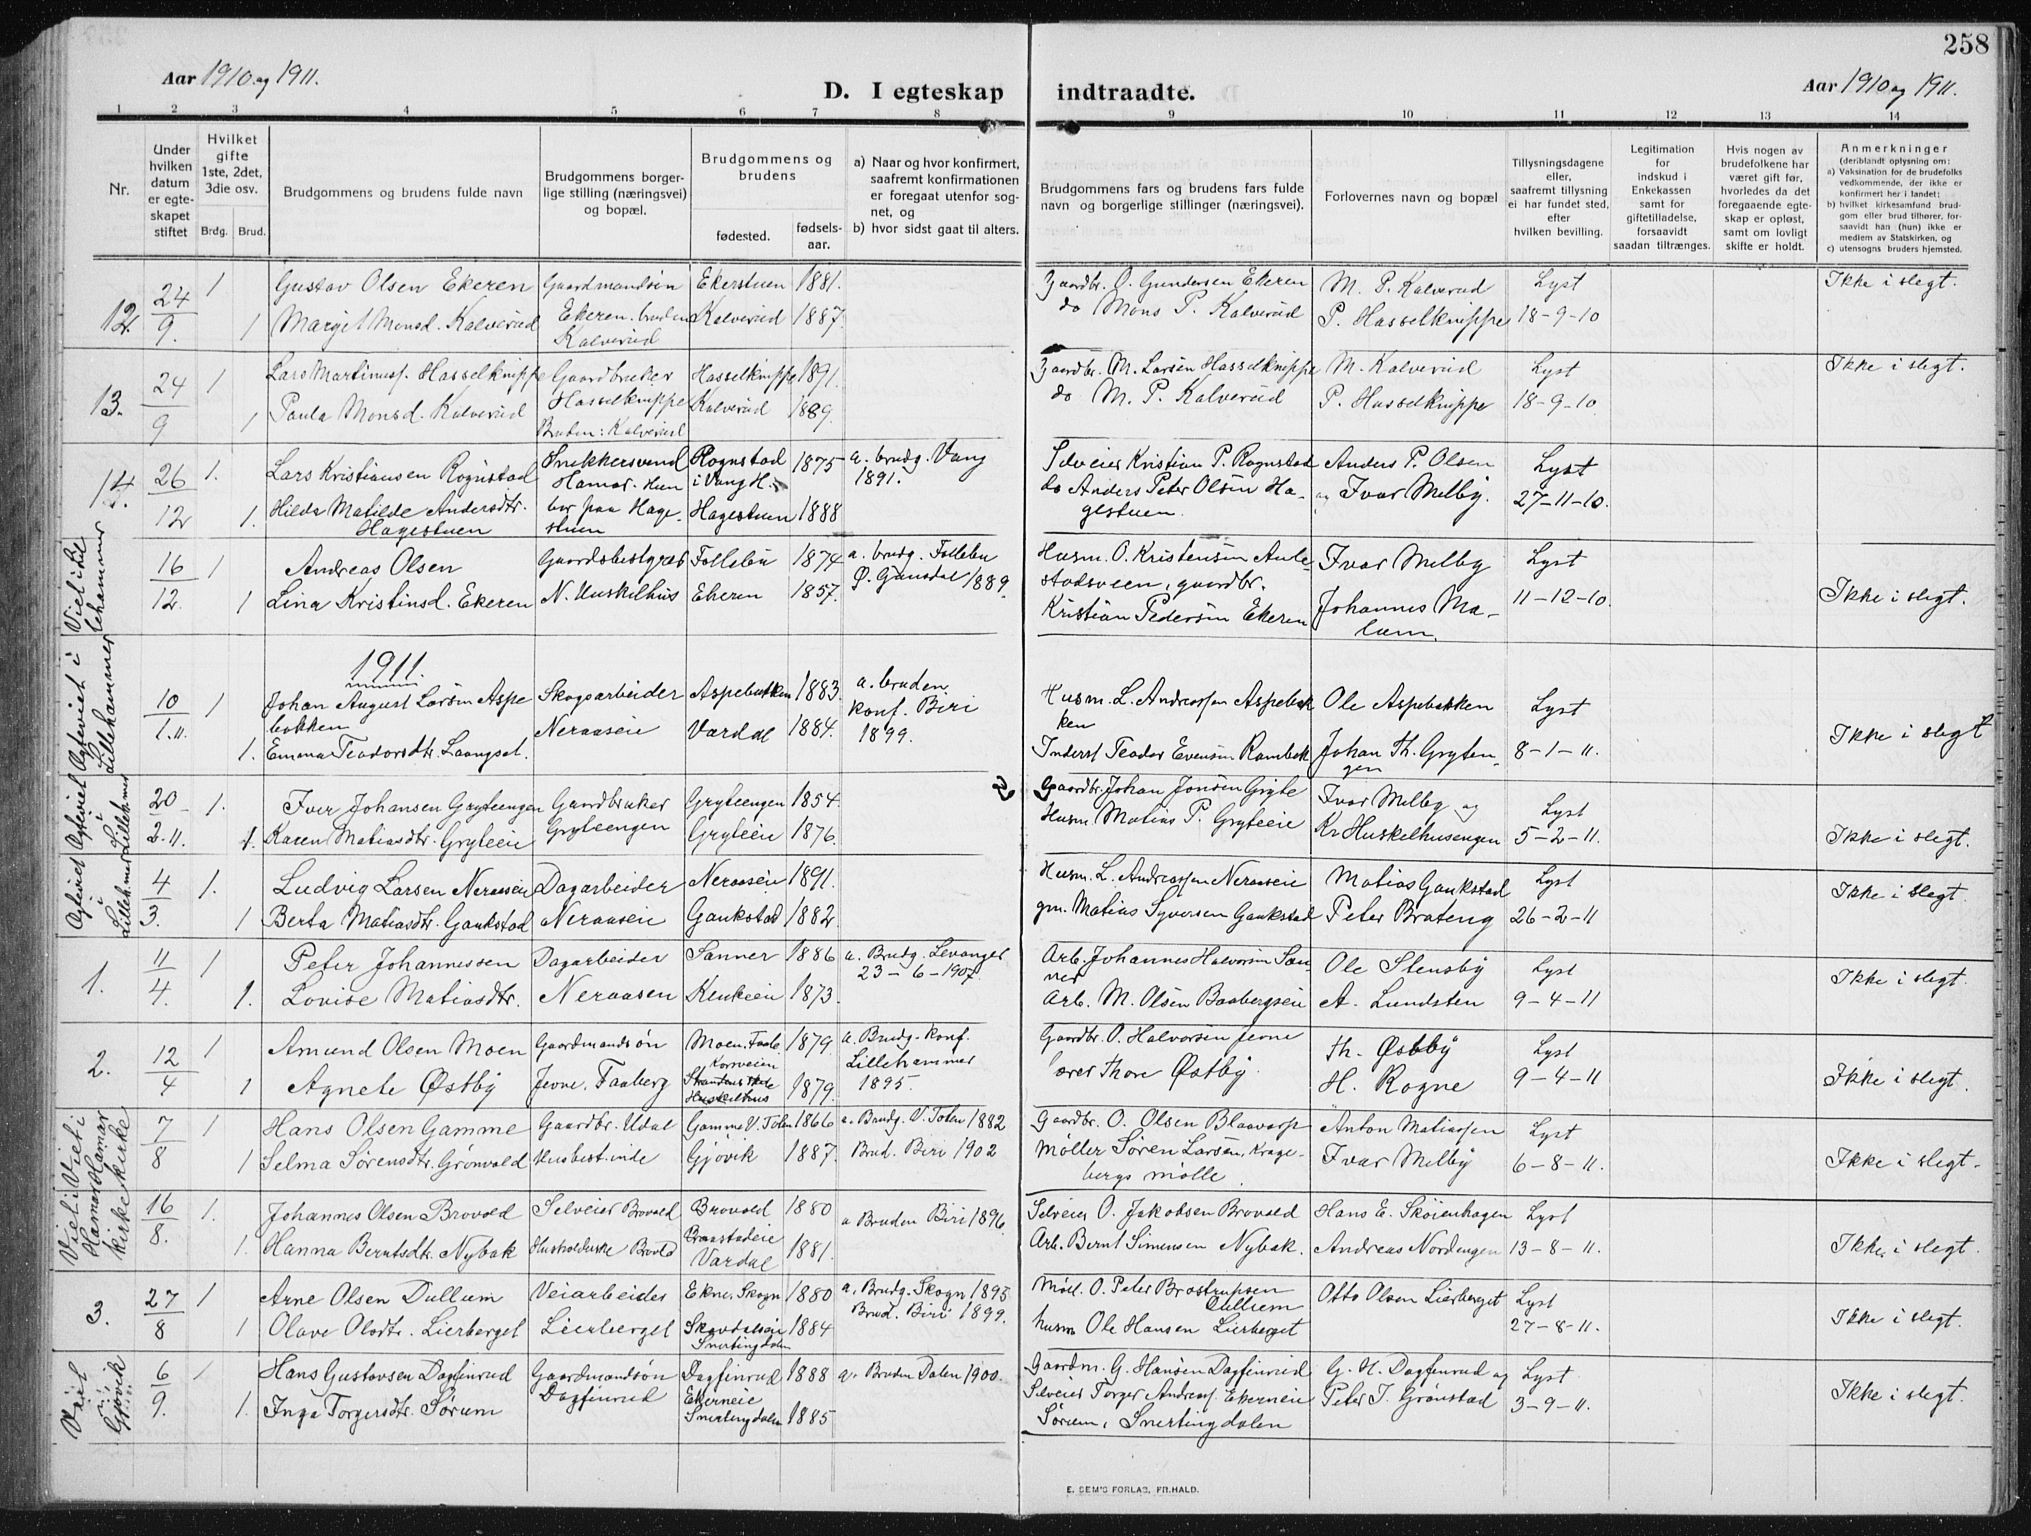 258
Aar 1910 og 1911.
D. I egteskap indtraadte.
Aar 1910 og 1911.
1 2 3 4 5 6 7 8 9 10 11 12 13 14
Nr.
Under hvilken datum er egte-skapet stiftet
Hvilket gifte 1ste, 2det, 3die osv.
Brdg. Brud.
Brudgommens og brudens fulde navn
Brudgommens borger-lige stilling (næringsvei) og bopæl.
Brudgommens og brudens
fødested.
fødsels-aar.
a) Naar og hvor konfirmert, saafremt konfirmationen er foregaat utenfor sog-net, og
b) hvor sidst gaat til alters.
Brudgommens fars og brudens fars fulde navn og borgerlige stillinger (næringsvei).
Forlovernes navn og bopæl
Tillysningsdagene eller, saafremt tillysning ei har fundet sted, efter hvilken bevilling.
Legitimation for indskud i Enkekassen samt for giftetilladelse, forsaavidt saadan tiltrænges.
Hvis nogen av brudefolkene har været gift før, hvorledes da det foregaaende egte-skap er opløst, samt om lovligt skifte er holdt.
Anmerkninger
(deriblandt oplysning om:
a) Vaksination for de brudefolks vedkommende, der ikke er konfirmert her i landet;
b) hvilket kirkesamfund brud-gom eller brud tilhører, for-saavidt han (hun) ikke er medlem av Statskirken, og
c) utensogns bruders hjemsted.
12. 24/9. 1 Gustav Olsen Ekeren Gaardmandsøn Ekerstuen 1881. Gaardbr. O. Gundersen Ekeren M. P. Kalverud Lyst Ikke i slegt.
1 Margit Monsd. Kalverud Ekeren. bruden Kalverud Kalverud 1887. do Mons P. Kalverud P. Hasselknippe 18-9-10
13. 24/9 1 Lars Martinusf. Hasselknippe Gaardbruker Hasselknippe Hasselknippe 1891. Gaardbr. M. Larsen Hasselknippe M. Kalverud Lyst Ikke i slegt.
1 Paula Monsd. Kalverud Bruden: Kalverud Kalverud 1889. do M. P. Kalverud P. Hasselknippe 18-9-10.
14. 26/12 1. Lars Kristiansen Rognstad Snekkersvend Hamar. Hun Rognstad i Vang H. 1875 a. brudg. Vang 1891. Selveier Kristian P. Rognstad Anders P. Olsen Lyst
1. Hilda Matilde Andersdtr. Hagestuen bor paa Hage-stuen Hagestuen 1888 do Anders Peter Olsen Ha-gestuen. og Ivar Melby. 27-11-10.
16/12. 1 Andreas Olsen Gaardsbestyrer Follebu 1874 a. brudg. Follebu Ø. Gausdal 1889. Husm. O. Kristensen Aule-stadsveen, gaardbr. Ivar Melby Lyst
1 Lina Kristinsd. Ekeren N. Huskelhus Ekeren 1857. Kristian Pedersen Ekeren Johannes Ma-lum. 11-12-10. Ikke i slegt.
1911.
10/1.11. 1 Johan August Larsen Aspe-bakken Skogsarbeider Aspebakken 1883. a. bruden konf. Biri 1899. Husm. L. Andreassen Aspebak-ken Ole Aspebakken Lyst
1. Emma Teodorsdtr. Laangset. Neraaseie Vardal 1884. Inderst Teodor Evensen Rambek Johan Th. Gryten-gen 8-1-11. Ikke i slegt
20/2.11. 1. Iver Johansen Gryteengen Gaardbruker Gryteengen 1854. Gaardbr. Johan Jonsen Gryte Ivar Melby og Lyst
1. Karen Matiasdtr. Gryteeie Gryteengen Gryteeie 1876. Husm. Matias P. Gryteeie Kr Huskelhusengen 5-2-11. Ikke i slegt.
4/3. 1. Ludvig Larsen Neraaseie Dagarbeider Neraaseie 1891. Husm. L. Andreassen Neraaseie Matias Gaukstad Lyst Ikke i slegt.
1 Berta Matiasdtr. Gaukstad Neraaseie Gaukstad 1882. gm. Matias Syversen Gaukstad Peter Brateng 26-2-11
1. 11/4. 1 Peter Johannessen Dagarbeider Sanner 1886 a. Brudg. Levanger 23-6-1907. Arb. Johannes Halvorsen San-ner Ole Stensby Lyst Ikke i slegt.
1. Lovise Matiasdtr. Neraasen Kenkeien 1873. Arb. M. Olsen Baabergseie A. Lundsten 9-4-11
2. 12/4 1 Amund Olsen Moen Gaardmandsøn Moen. Faab. 1879 a. Brudg. konf. Lillehammer 1895. Gaardbr. O. Halvorsen Jevne Th. Østby Lyst
1 Agnete Østby Jevne, Faaberg Korsveien Huskelhus 1879. lærer Thore Østby. H. Rogne 9-4-11 Ikke i slegt.
7/8 1 Hans Olsen Gamme Gaardbr. Udal Gamme V. Toten 1866 a. Brudg. V. Toten 1882 Gaardbr. O. Olsen Blaavarp Anton Matiassen Lyst
1 Selma Sørensdtr. Grønvold Husbest.inde Gjøvik 1887. Brud. Biri 1902 Møller Søren Larsen, Krage-bergs mølle. Ivar Melby 6-8-11. Ikke i slegt.
16/8. 1. Johannes Olsen Brovold Selveier Brovold Brovold 1880 a Bruden Biri 1896. Selveier O. Jakobsen Brovold Hans E. Skøienhagen Lyst
1. Hanna Berntsdtr. Nybak Husholderske Brovld Braastadeie Vardal 1881. Arb. Bernt Simensen Nybak. Andreas Nordengen 13-8-11. Ikke i slegt.
3. 27/8 1 Arne Olsen Dullum Veiarbeider Ekne, Skogn 1880 a. Brudg. Skogn 1895. Møll. O. Peter Brostrupsen Dullum Otto Olsen Lierberget Lyst
1 Olave Olsdtr. Lierberget Lierberget Skovdalseie Snertingdalen 1884 Brud. Biri 1899. husm Ole Hansen Lierberget 27-8-11. Ikke i slegt.
6/9. 1 Hans Gustavsen Dagfinrud Gaardmandsøn Dagfinrud 1888 a. Bruden Dalen 1900. Gaardm. G. Hansen Dagfinrud G. H. Dagfinrud og Lyst
1. Inga Torgersdtr. Sørum Dagfinrud Ekerneie Snertingdalen 1885 Selveier Torger Andreasf. Ekerneie Sørum, Snertingdalen Peter J. Grønstad 3-9-11. Ikke i slegt.
Viet i Lillehammer
Viet i Hamar kirke
Viet i Hamar kirke
Viet i Gjøvik
E. SEM'S FORLAG, FR.HALD.